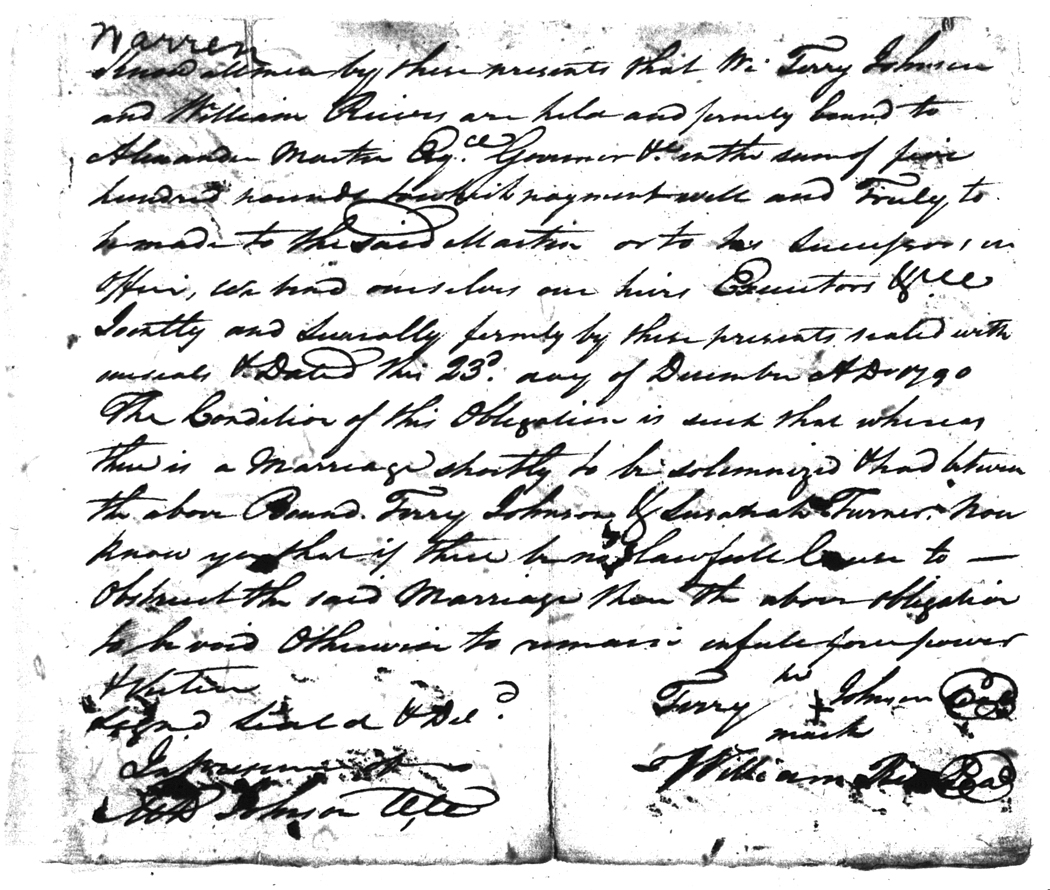 Warren
Know all men by these presents that We Terry Johnson
and William Rivers are held and firmly bound to
Alexander Martin Esq. Governor &c in the sum of five
hundred pounds to which payment well and Truly to
be made to the said Martin or to his Successors in
office, we bind ourselves our heirs Executors &
Jointly and Severally firmly by these presents sealed with
our seals & Dated this 23d. day of December AD 1790
The Condition of this Obligation is such that whereas
there is a Marriage shortly to be solemnized & had between
the above Bound. Terry Johnson & Susanah Turner. Now
Know ye that if there be no lawfull Cause to —
Obstruct the said Marriage then the above obligation
to be void Otherwise to remain in full force power
& Virtue
Signd Seald & Deld.
In presence of
Johnson
Terry his + Johnson Seal
mark
William Seal